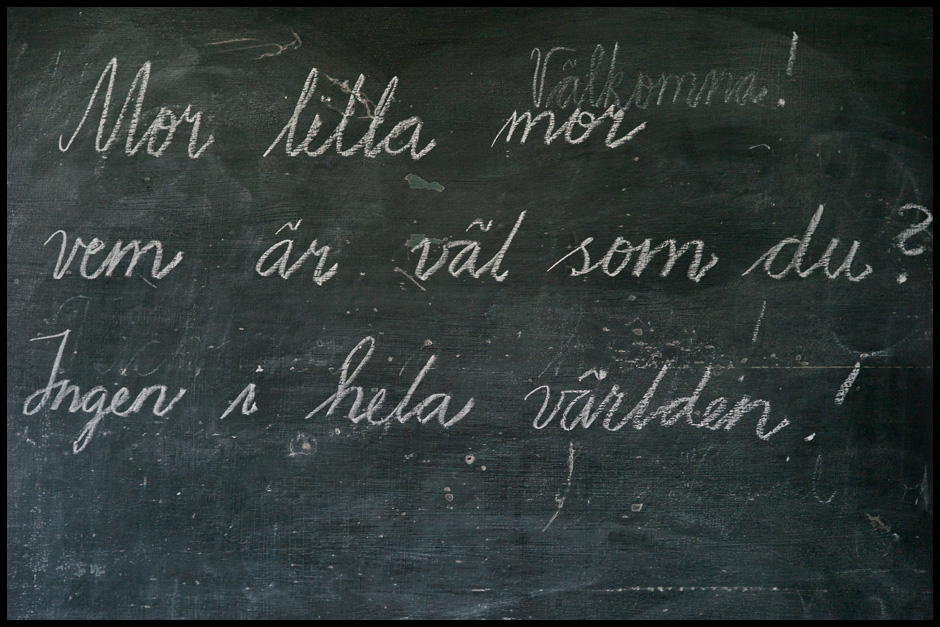 Välkomna!
Mor lilla mor
vem är väl som du?
Ingen i hela världen!